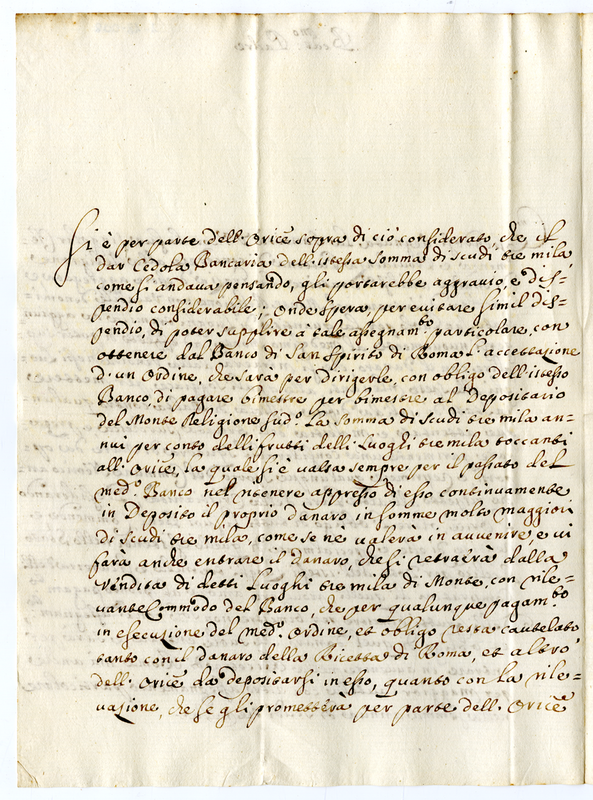 Si è per parte dell'Orice sopra di ciò considerato, che il
dar Cedola Bancaria dell'istessa somma di scudi tre mila
come si andava pensando, gli portarebbe aggravio, e dis=
pendio considerabile; Onde spera, per evitare simil dis=
pendio, di poter supplire à tale assegnam.to particolare, con
ottenere dal Banco di San Spirito di Roma l'accettazione
d'un Ordine, che sarà per dirigerle, con obligo dell'istesso
Banco, di pagare bimestre per bimestre al Depositario
del Monte Religione sud.o la somma di scudi tre mila an=
nui per conto delli frutti delli Luoghi tre mila toccanti
all'Orice, la quale si è valsa sempre per il passato del
med.o Banco nel ritenere appresso di esso continuamente
in Deposito il proprio danaro in somme molto maggiori
di scudi tre mila, come se ne valerà in avvenire, e vi
farà anche entrare il danaro, che si retraerà dalla
vendita di detti Luoghi tre mila di Monte, con rile=
vante Commodo del Banco, che per qualunque pagam.to
in esecuzione del med.o Ordine, et obligo resta cautelato,
tanto con il danaro della Ricetta di Roma, et altro
dell'Orice da depositarsi in esso, quanto con la rile=
vazione, che se gli prometterà per parte dell'Orice